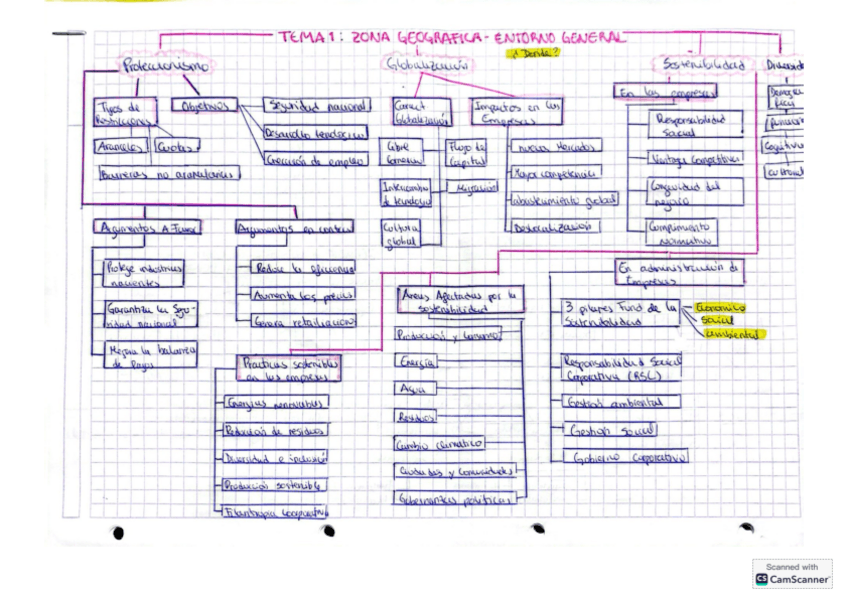 TEMA 1: ZONA GEOGRAFICA - ENTORNO GENERAL
¿Donde?
Proteccionismo
Globalización
Sostenibilidad
Tipos de
Restricciones
Objetivos
Seguridad nacional
Desarrollo tecnologico
Creacion de empleo
Aranceles
Cuotas
Barreras no arancelarias
Caract
Globalización
Impactos en las
Empresas
Libre
Comercio
Flujo de
Capital
Intercambio
de tecnologia
Migracion
Cultura
global
Nuevos Mercados
Mayor competencia
Abastecimiento global
Deslocalización
En las empresas
Responsabilidad
Social
Ventaja Competitiva
Continuidad del
negocio
Cumplimiento
normativo
Cultural
Argumentos A Favor
Argumentos en contra
Protege industrias
nacientes
Garantiza la Segu-
ridad nacional
Mejora la balanza
de Pagos
Reduce la eficiencia
Aumenta los precios
Genera retaliacion
Practicas sostenibles
en las empresas
Energias renovables
Reduccion de residuos
Diversidad e inclusión
Producción sostenible
Filantropia Corporativa
Áreas Afectadas por la
sostenibilidad
Producción y Consumo
Energía
Agua
Residuos
Cambio climatico
Ciudades y Comunidades
Gobernanzas politicas
En administración de
Empresas
3 pilares Fund de la
Sostenibilidad
Economico
Social
ambiental
Responsabilidad Social
Coporativa (RSC)
Gestion ambiental
Gestion Social
Gobierno Corporativo
Scanned with
CS CamScanner